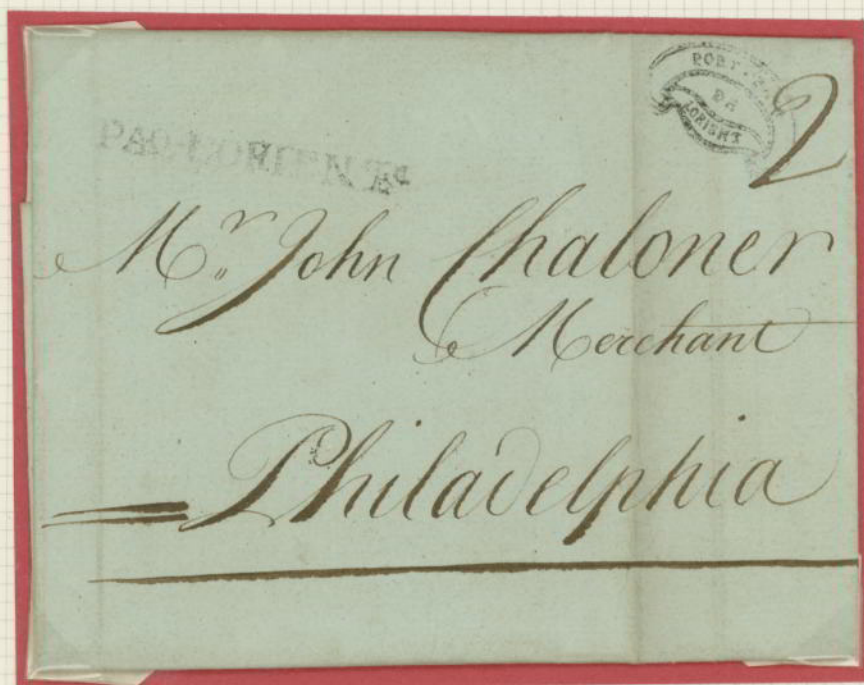 PAQ·LORIENT
PORT
2
DE
LORIENT
Mr. John Chaloner
Merchant
Philadelphia